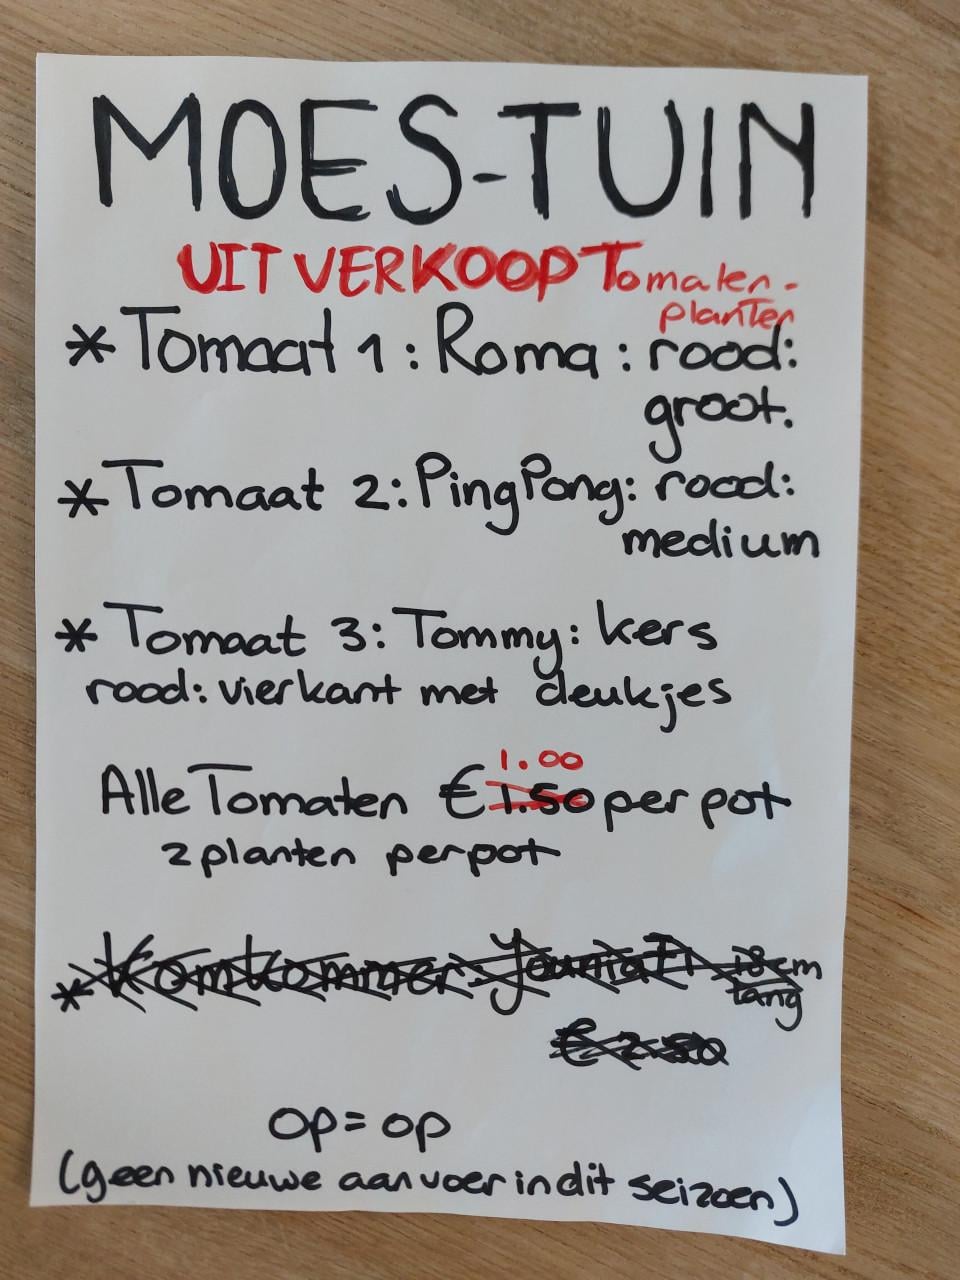 MOES-TUIN
UITVERKOOP Tomaten-
planten
* Tomaat 1: Roma: rood:
groot.
* Tomaat 2: PingPong: rood:
medium
* Tomaat 3: Tommy: kers
rood: vierkant met deukjes
1.00
Alle Tomaten €1.50 per pot
2 planten per pot
* Komkommer: 18 cm
lang
€ 2.50
op = op
(geen nieuwe aanvoer in dit seizoen)